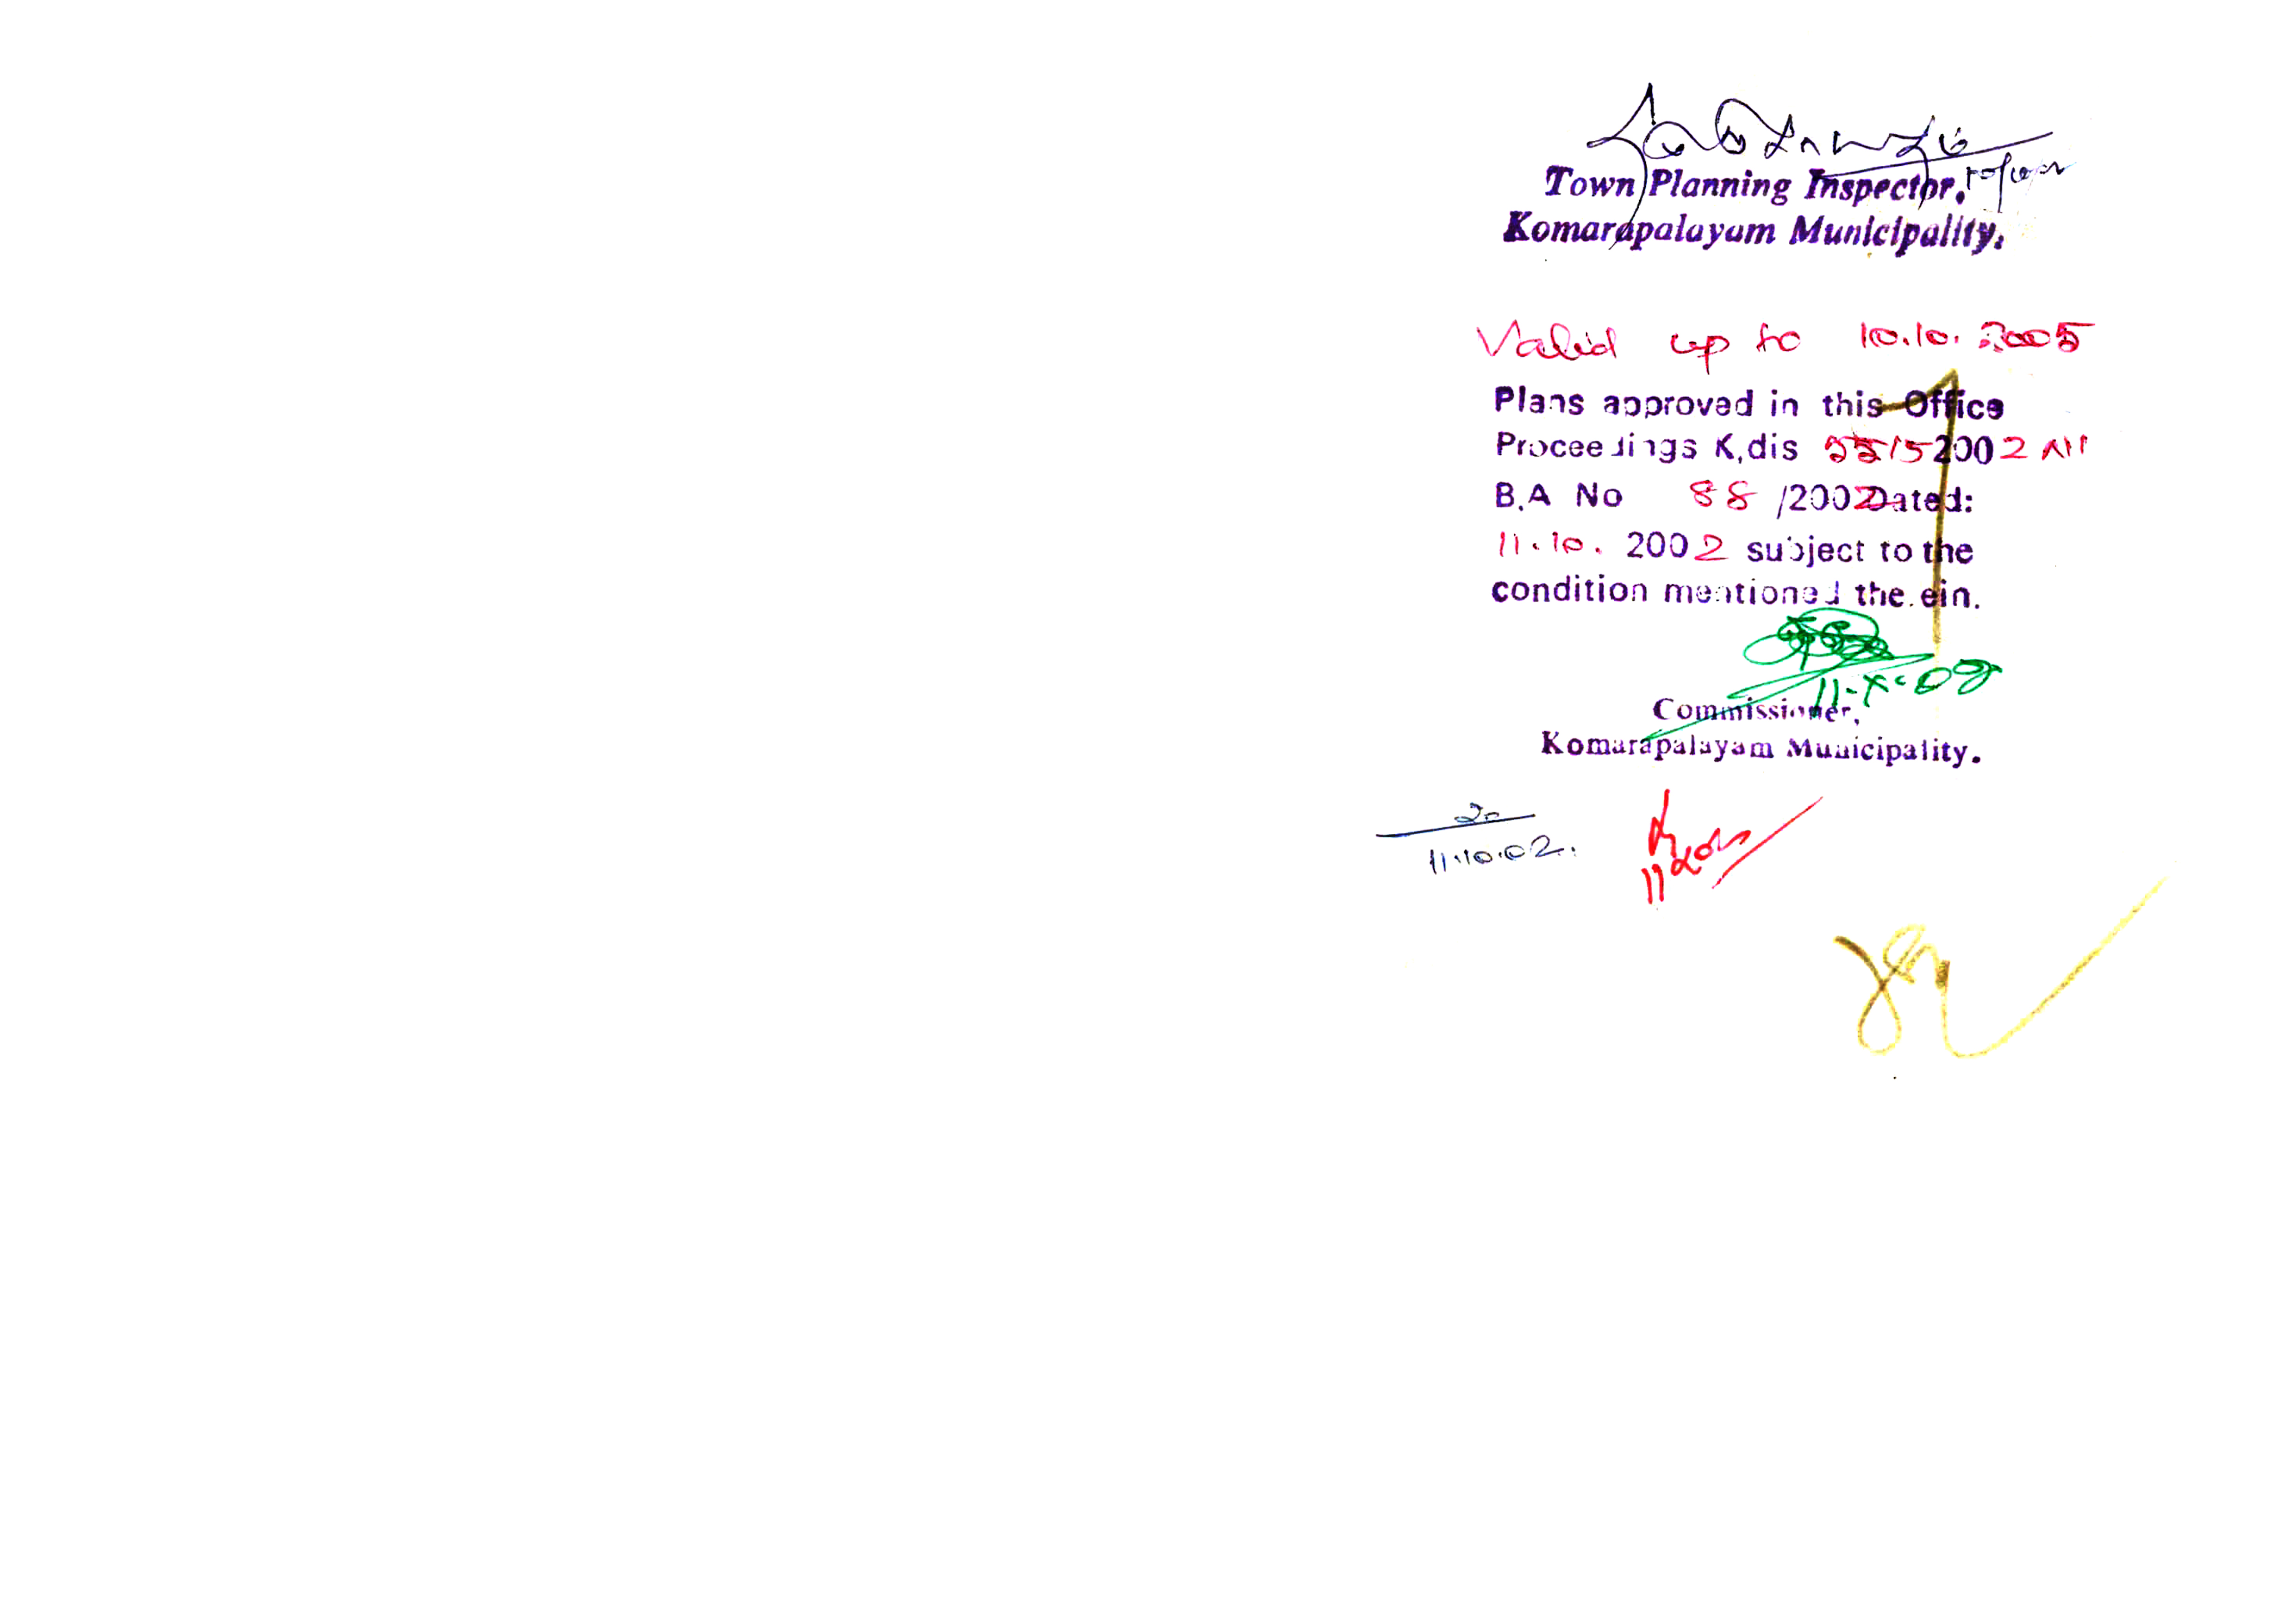 Town Planning Inspector,
Komarapalayam Municipality.
Valid up to 10.10.2005
Plans approved in this Office
Proceedings K.dis 2002 A11
B.A No 88 /2002 Dated:
11.10. 2002 subject to the
condition mentioned the ein.
11-X-02
Commissioner,
Komarapalayam Municipality.
11.10.02.